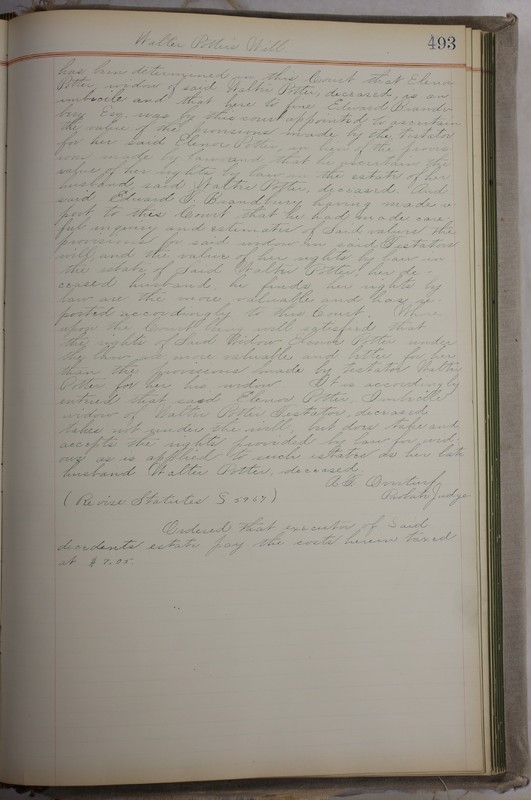 Walter Potter's Will
493
has been determined in this Court that Elenor
Potter widow of said Walter Potter, deceased, is an
imbecile and that here to fore Edward Brande-
bury Esq. was by this court appointed to ascertain
the value of the provisions made by the testator
for her said Elenor Potter, in lieu of the provis
ions made by law and that he ascertain the
value of her rights by law in the estate of her
husband, said Walter Potter, deceased. And
said Edward Brandebury having made re-
port to this Court that he had made care-
ful inquiry and estimates of said values the
provisions for said widow in said Testators
will, and the value of her rights by law in
the estate of said Walter Potter, her de-
ceased husband he finds her rights by
law are the more valuable and has re-
ported accordingly to this Court. Where
upon the Court being well satisfied that
the rights of said Widow Elenor Potter under
the law are more valuable and better for her
than the provisions made by testator Walter
Potter for her his widow. It is accordingly
entered that said Elenor Potter, Imbecile
widow of Walter Potter Testator, deceased
takes not under the will, but does take and
accepts the rights provided by law for wid
ow as is applied to such estates as her late
husband Walter Potter, deceased
Probate Judge
(Revise Statutes § 5967)
Ordered that executor of said
decedents estate pay the costs herein taxed
at $7.05